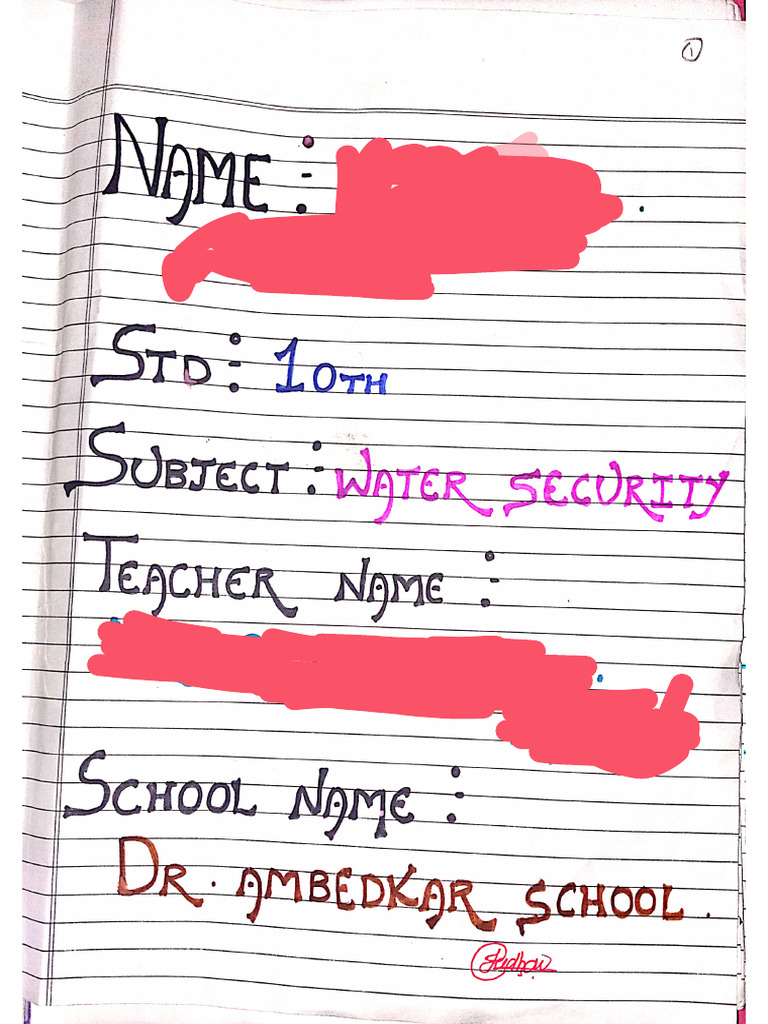 1
NAME :-
STD :- 10TH
SUBJECT :- WATER SECURITY
TEACHER NAME :-
SCHOOL NAME :-
DR. AMBEDKAR SCHOOL.